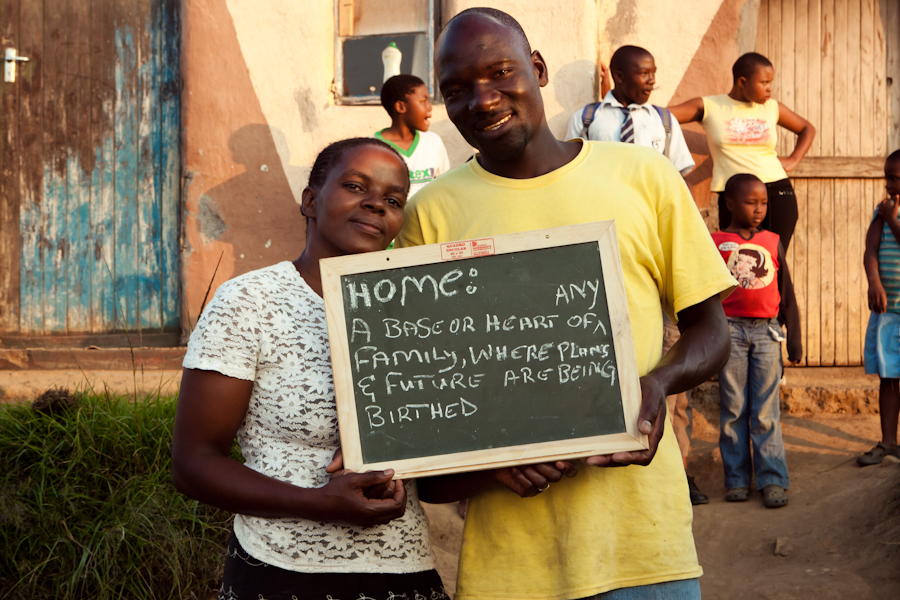 HOME:
ANY
A BASE OR HEART OF ^
FAMILY, WHERE PLANS
& FUTURE ARE BEING
BIRTHED